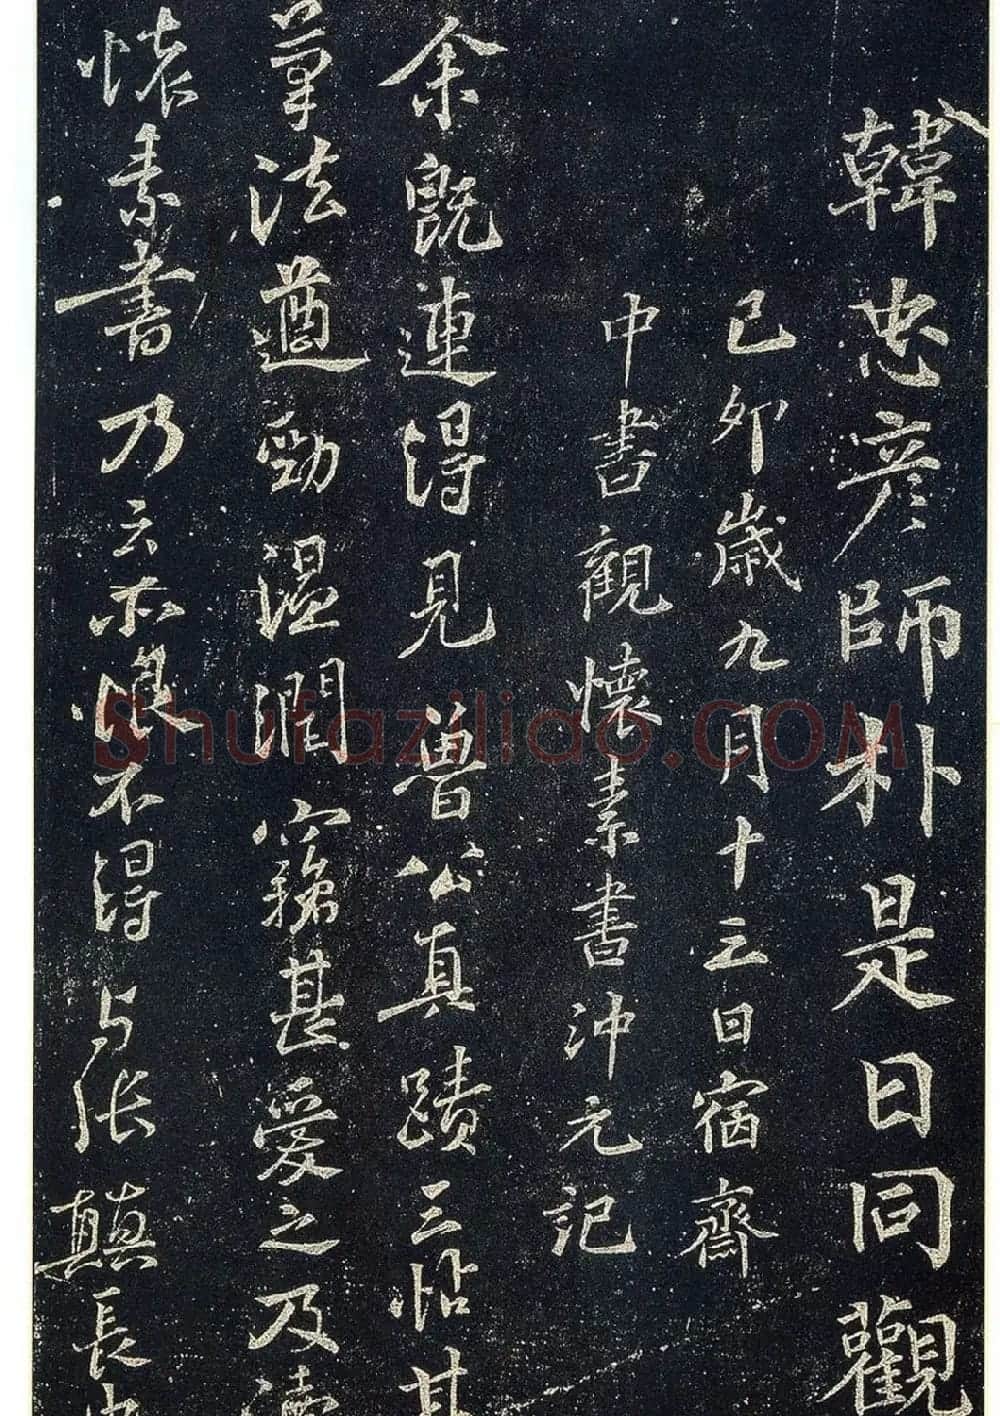 韓忠彦師朴是日同觀
己卯歲九月十三日宿齋
中書觀懷素書沖元記
余既連得見魯公真蹟三帖其
筆法遒勁溫潤竊甚愛之及
懷素書乃云亦恨不得与張顛長
Shufaziliao.COM